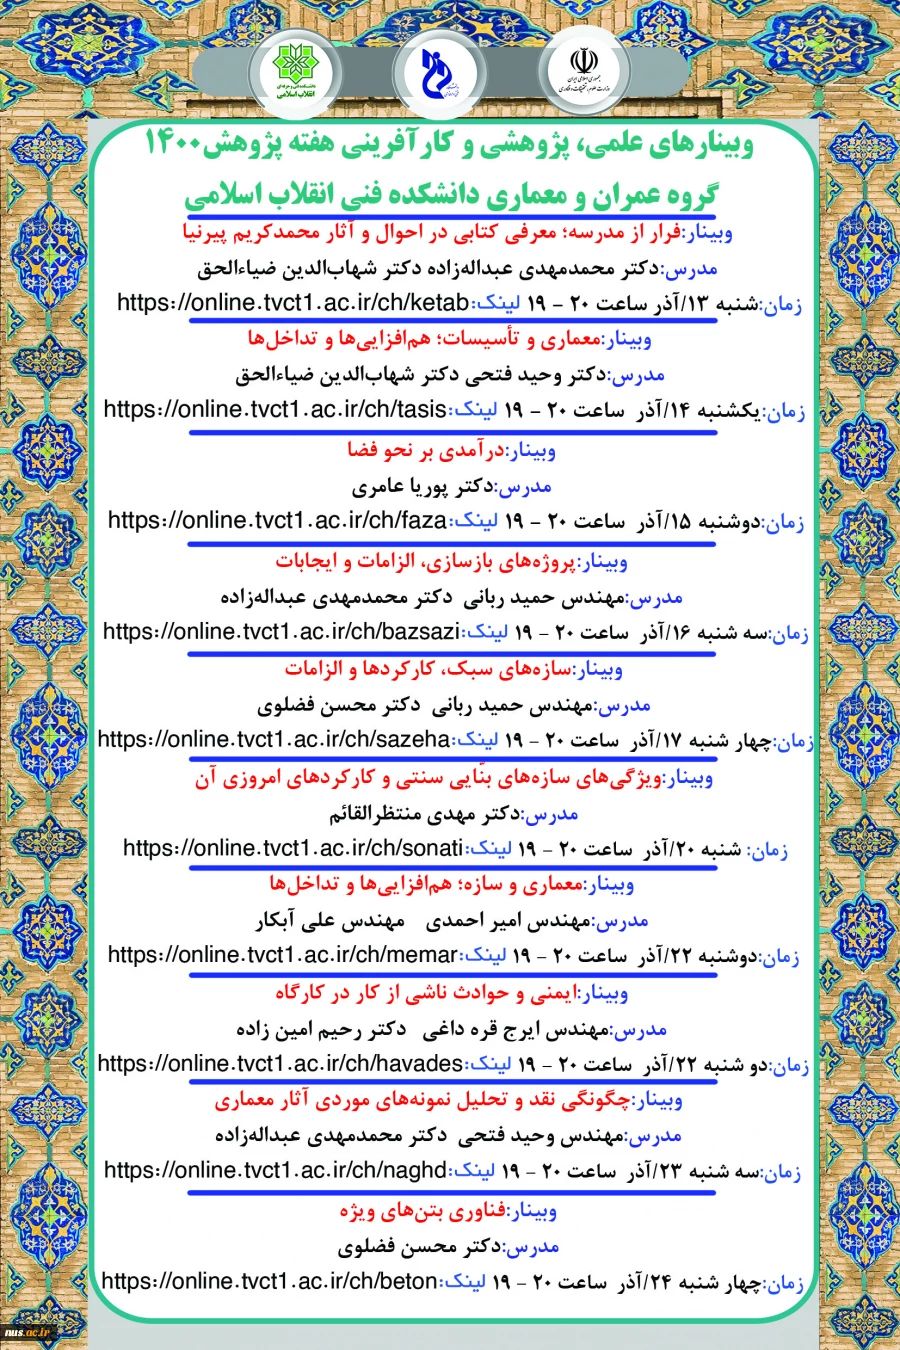 دانشکده فنی و حرفه ای
انقلاب اسلامی
جمهوری اسلامی ایران
وزارت علوم، تحقیقات و فناوری
وبینارهای علمی، پژوهشی و کارآفرینی هفته پژوهش۱۴۰۰
گروه عمران و معماری دانشکده فنی انقلاب اسلامی
وبینار:فرار از مدرسه؛ معرفی کتابی در احوال و آثار محمدکریم پیرنیا
مدرس:دکتر محمدمهدی عبداله‌زاده دکتر شهاب‌الدین ضیاءالحق
زمان:شنبه ۱۳/آذر ساعت ۲۰ - ۱۹ لینک:https://online.tvct1.ac.ir/ch/ketab
وبینار:معماری و تأسیسات؛ هم‌افزایی‌ها و تداخل‌ها
مدرس:دکتر وحید فتحی دکتر شهاب‌الدین ضیاءالحق
زمان:یکشنبه ۱۴/آذر ساعت ۲۰ - ۱۹ لینک:https://online.tvct1.ac.ir/ch/tasis
وبینار:درآمدی بر نحو فضا
مدرس:دکتر پوریا عامری
زمان:دوشنبه ۱۵/آذر ساعت ۲۰ - ۱۹ لینک:https://online.tvct1.ac.ir/ch/faza
وبینار:پروژه‌های بازسازی، الزامات و ایجابات
مدرس:مهندس حمید ربانی دکتر محمدمهدی عبداله‌زاده
زمان:سه شنبه ۱۶/آذر ساعت ۲۰ - ۱۹ لینک:https://online.tvct1.ac.ir/ch/bazsazi
وبینار:سازه‌های سبک، کارکردها و الزامات
مدرس:مهندس حمید ربانی دکتر محسن فضلوی
زمان:چهار شنبه ۱۷/آذر ساعت ۲۰ - ۱۹ لینک:https://online.tvct1.ac.ir/ch/sazeha
وبینار:ویژگی‌های سازه‌های بنّایی سنتی و کارکردهای امروزی آن
مدرس:دکتر مهدی منتظرالقائم
زمان: شنبه ۲۰/آذر ساعت ۲۰ - ۱۹ لینک:https://online.tvct1.ac.ir/ch/sonati
وبینار:معماری و سازه؛ هم‌افزایی‌ها و تداخل‌ها
مدرس:مهندس امیر احمدی مهندس علی آبکار
زمان:دوشنبه ۲۲/آذر ساعت ۲۰ - ۱۹ لینک:https://online.tvct1.ac.ir/ch/memar
وبینار:ایمنی و حوادث ناشی از کار در کارگاه
مدرس:مهندس ایرج قره داغی دکتر رحیم امین زاده
زمان:دو شنبه ۲۲/آذر ساعت ۲۰ - ۱۹ لینک:https://online.tvct1.ac.ir/ch/havades
وبینار:چگونگی نقد و تحلیل نمونه‌های موردی آثار معماری
مدرس:مهندس وحید فتحی دکتر محمدمهدی عبداله‌زاده
زمان:سه شنبه ۲۳/آذر ساعت ۲۰ - ۱۹ لینک:https://online.tvct1.ac.ir/ch/naghd
وبینار:فناوری بتن‌های ویژه
مدرس:دکتر محسن فضلوی
زمان:چهار شنبه ۲۴/آذر ساعت ۲۰ - ۱۹ لینک:https://online.tvct1.ac.ir/ch/beton
nus.ac.ir